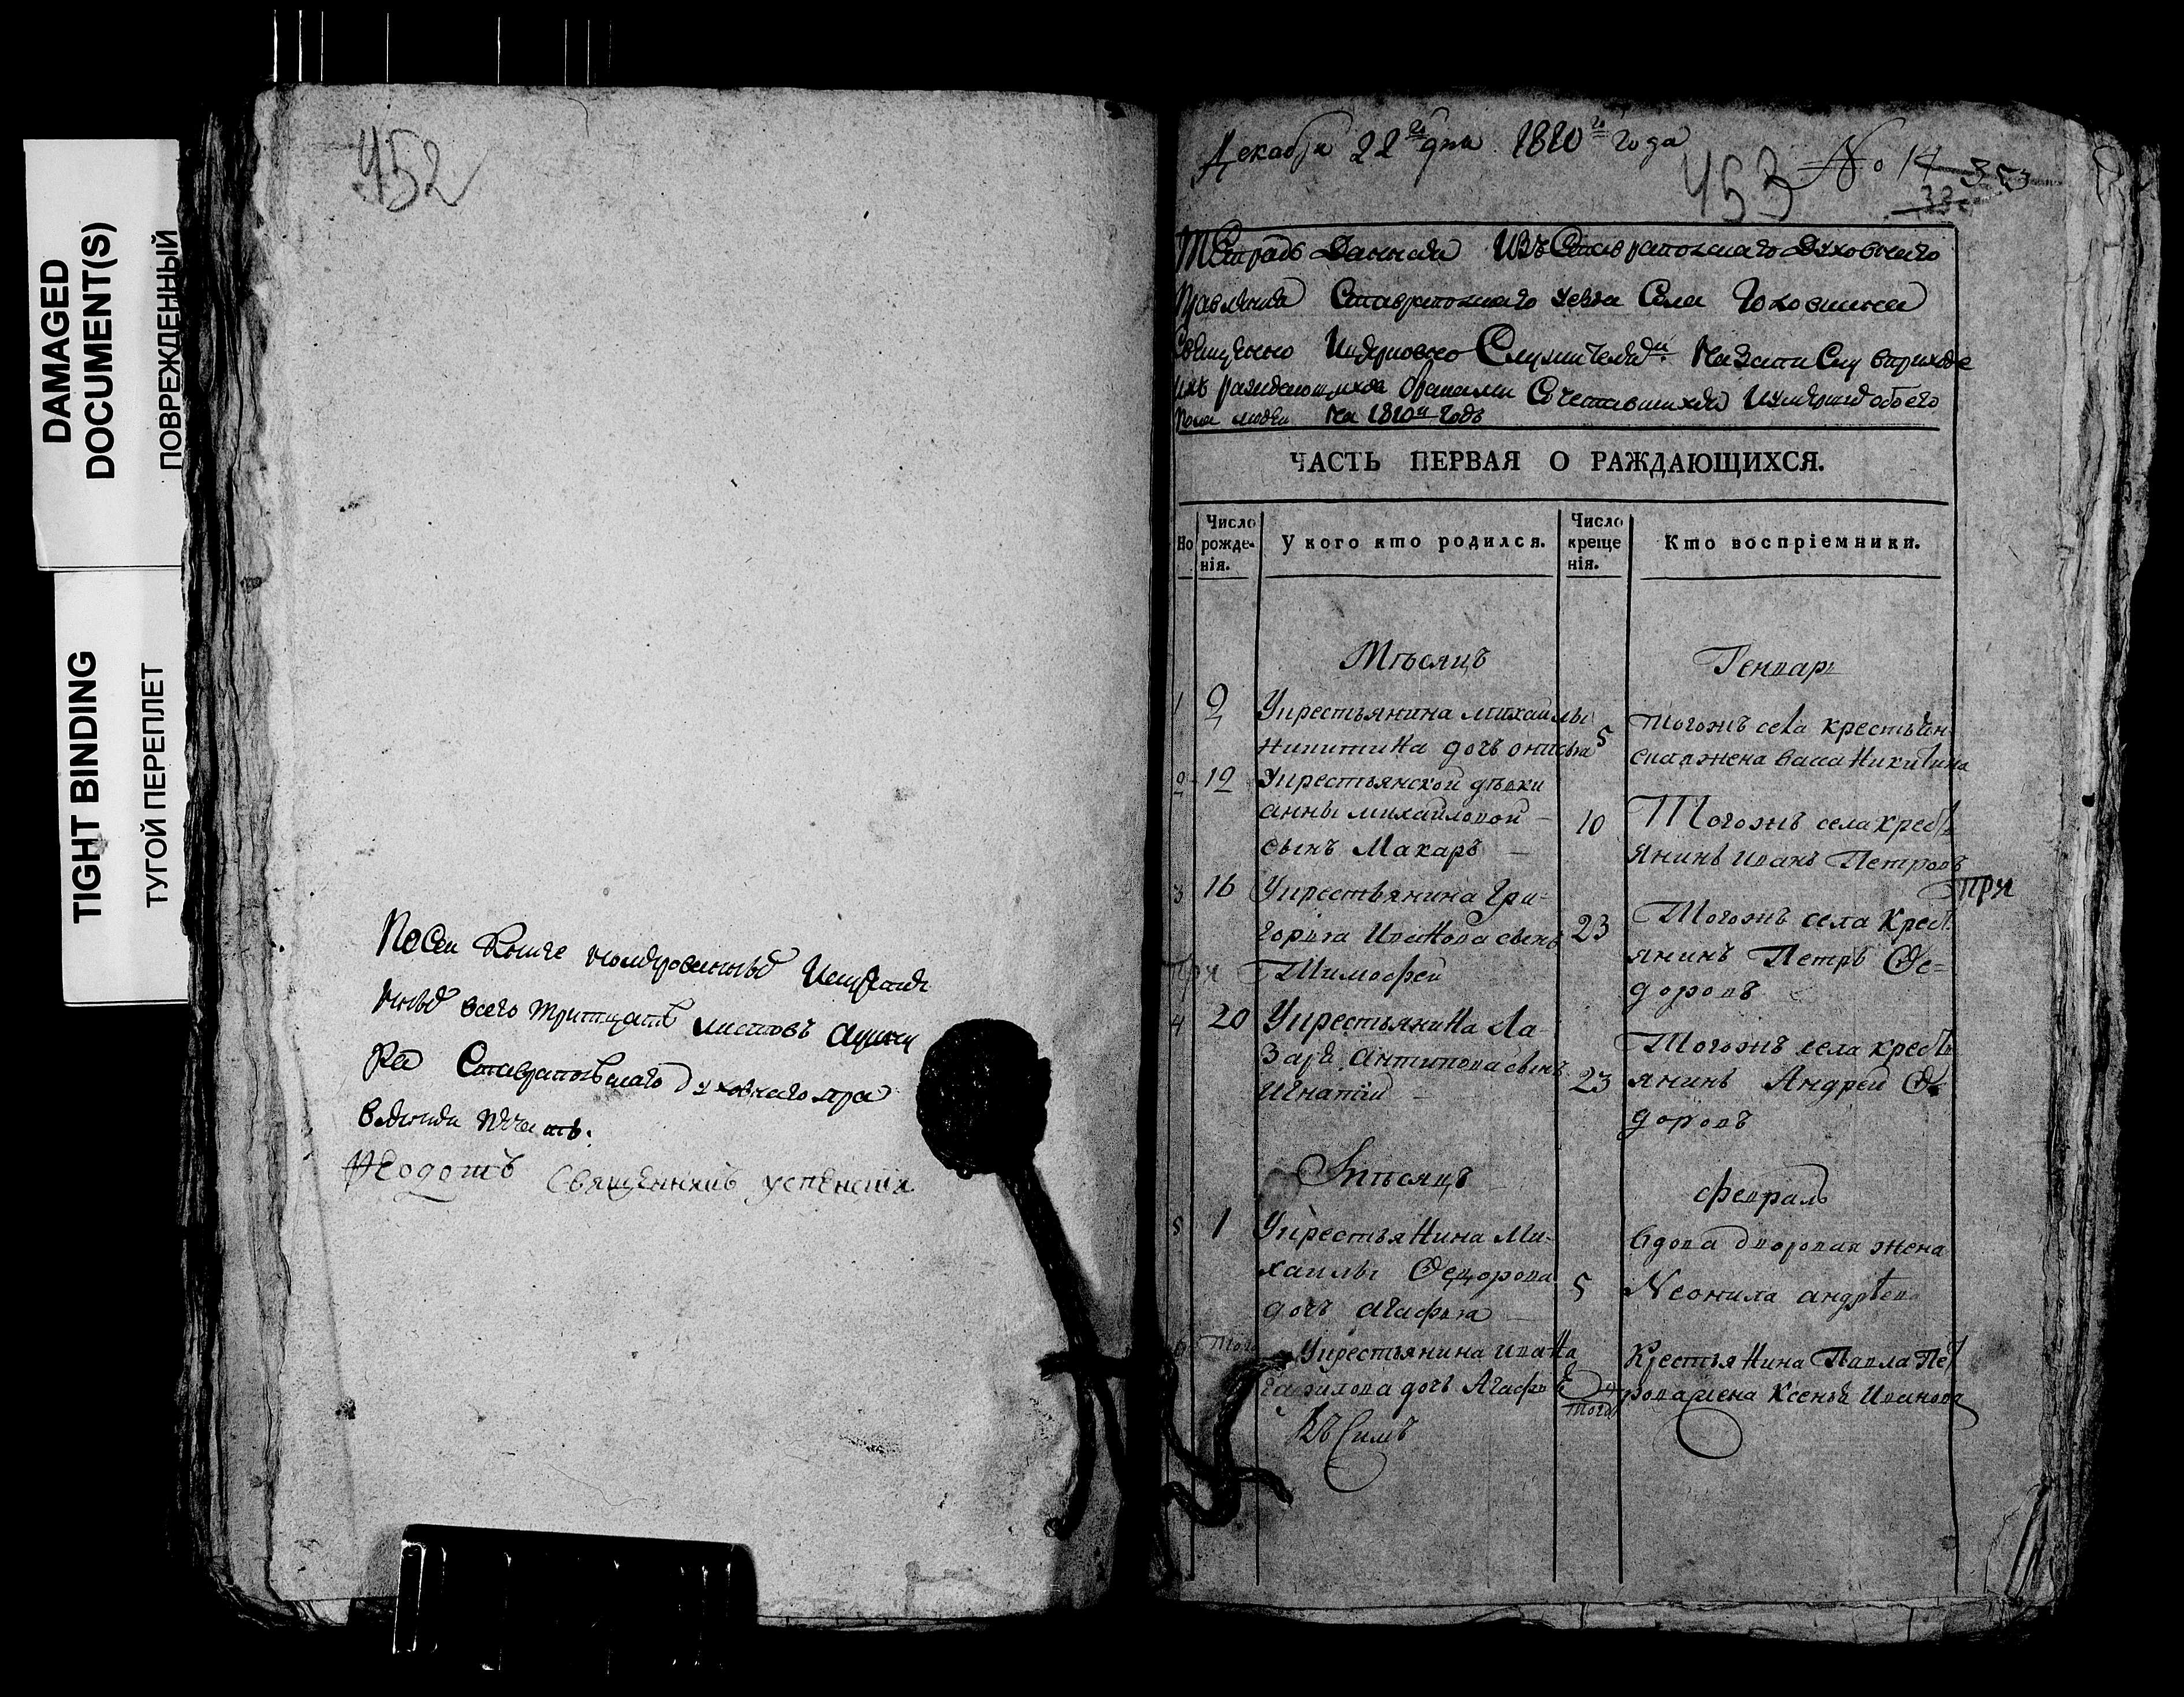 DAMAGED
DOCUMENT(S)
ПОВРЕЖДЕННЫЙ
TIGHT BINDING
ТУГОЙ ПЕРЕПЛЕТ
452
По Сей Книге номерованныхъ
всего тритцать листовъ
Ставропольскаго духовнаго пра
вления печать.
Федотъ Священникъ
Декабря 22го дня 1810го года
453 No 14 353
Тетрадь Данная Изъ Ставропольскаго Духовнаго
Правления Ставропольскаго уезда Села
Священно Ицерковно Служителями На Записку вприходе
ихъ раждающихся браками Сочетавшихся Иумершихъ обоего
пола людей На 1810й Годъ
ЧАСТЬ ПЕРВАЯ О РАЖДАЮЩИХСЯ.
Но
Число рожде-нія.
У кого кто родился.
Число креще нія.
Кто воспріемники.
Мѣсяцъ Генварь
1 9 Укрестьянина михаилы
Никитина дочь 5
тогожъ села крестьян
ская жена васса Никитина
2 12 Укрестьянской дѣвки
анны михайловой
сынъ Макаръ 10
Тогожъ села крест
янинъ иванъ Петровъ
3 16 Укрестьянина Гри-
горья Иванова сынъ
Тимофей 23
при
Тогожъ села Крест
янинъ Петръ Фе=
доровъ
4 20 Укрестьянина Ла
заря Антипова сынъ
Игнатій 23
Тогожъ села крест
янинъ Андрей Фе
доровъ
Мѣсяцъ февраль
5 1 Укрестьянина Ми-
хаилы Федорова
дочь агафья 5
вдова дворовая жена
Неонила андреева
6 Того Укрестьянина ивана
дочь Агафья
Того
Крестьянина Павла Пет
рова жена Ксенья Иванова